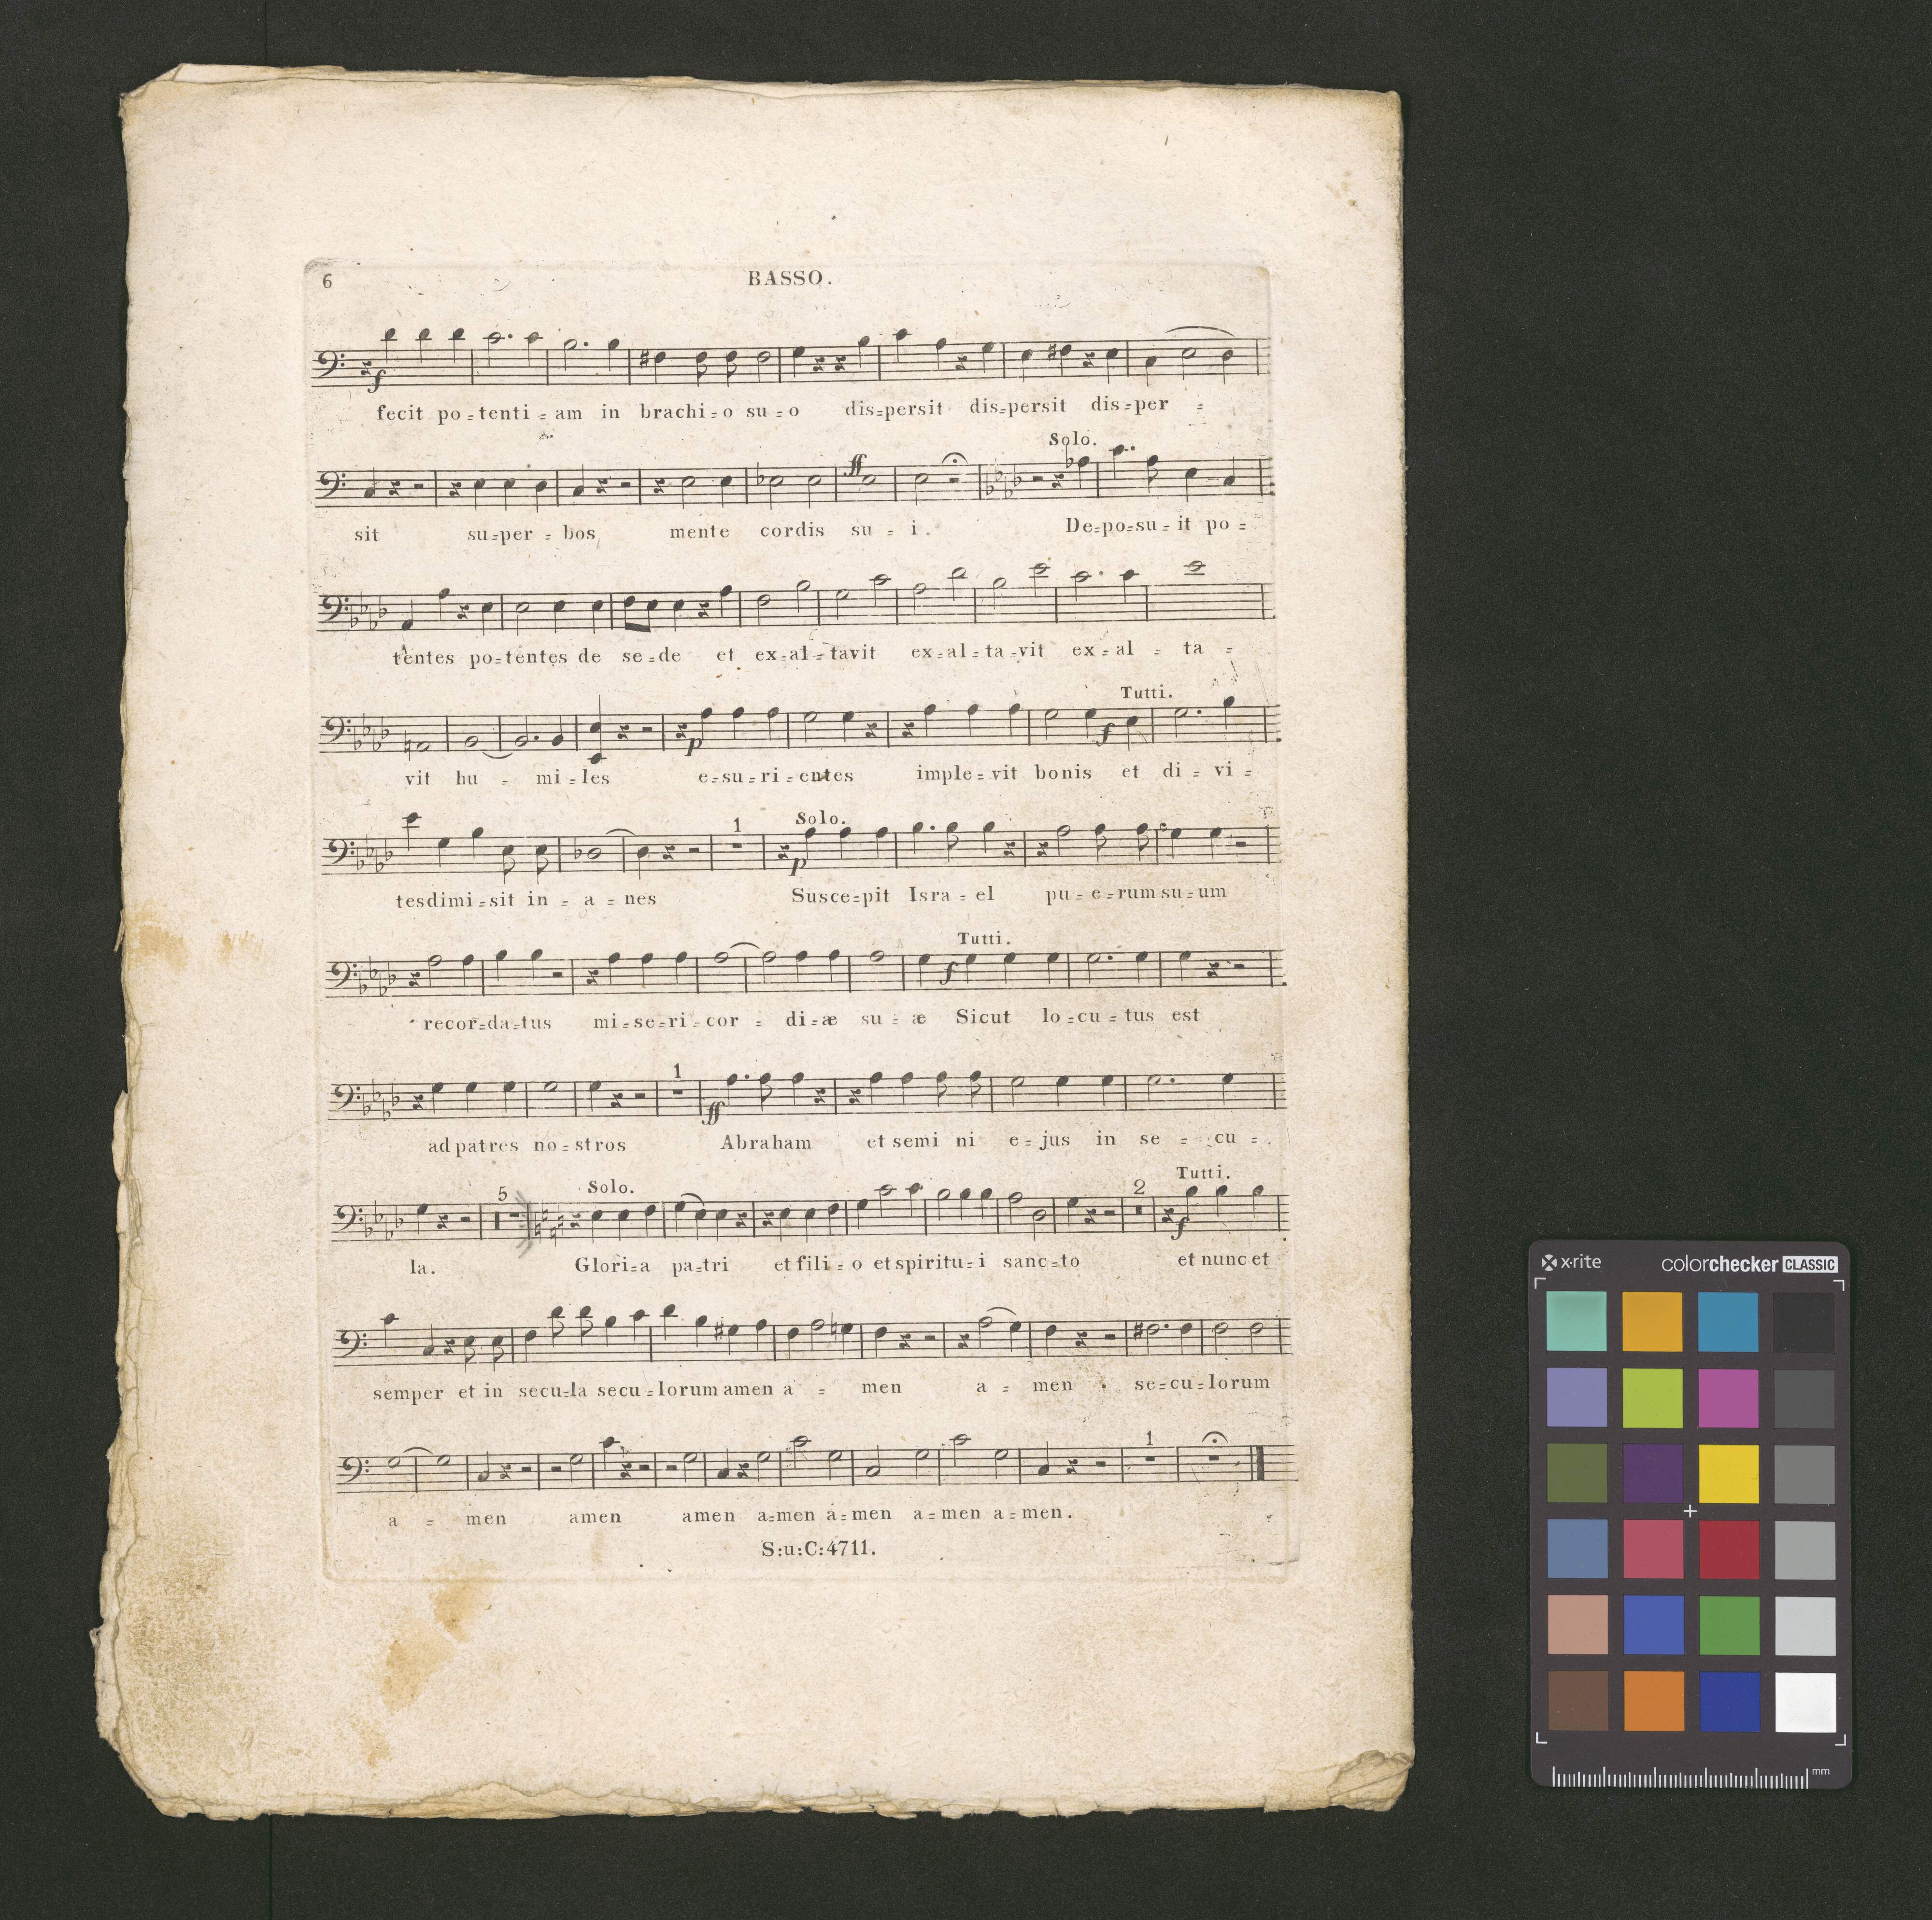 6
BASSO.
f
fecit po=tenti=am in brachi=o su=o dis=persit dis=persit dis=per =
Solo.
ff
sit su=per=bos mente cordis su=i. De=po=su=it po=
tentes po=tentes de se=de et ex=al=tavit ex=al=ta=vit ex=al = ta =
Tutti.
p f
vit hu = mi=les e=su=ri=entes imple=vit bonis et di=vi=
1 Solo.
p
tesdimi=sit in = a = nes Susce=pit Isra=el pu=e=rum su=um
Tutti.
f
recor=da=tus mi=se=ri=cor = di=æ su=æ Sicut lo=cu=tus est
1
ff
ad patres no=stros Abraham et semi ni e=jus in se = cu =
5 Solo. 2 Tutti.
f
la. Glori=a pa=tri et fili=o et spiritu=i sanc=to et nunc et
semper et in secu=la secu=lorum amen a = men a = men se=cu=lorum
1
a = men amen amen a=men a=men a=men a=men.
S:u:C:4711.
x·rite colorchecker CLASSIC
mm